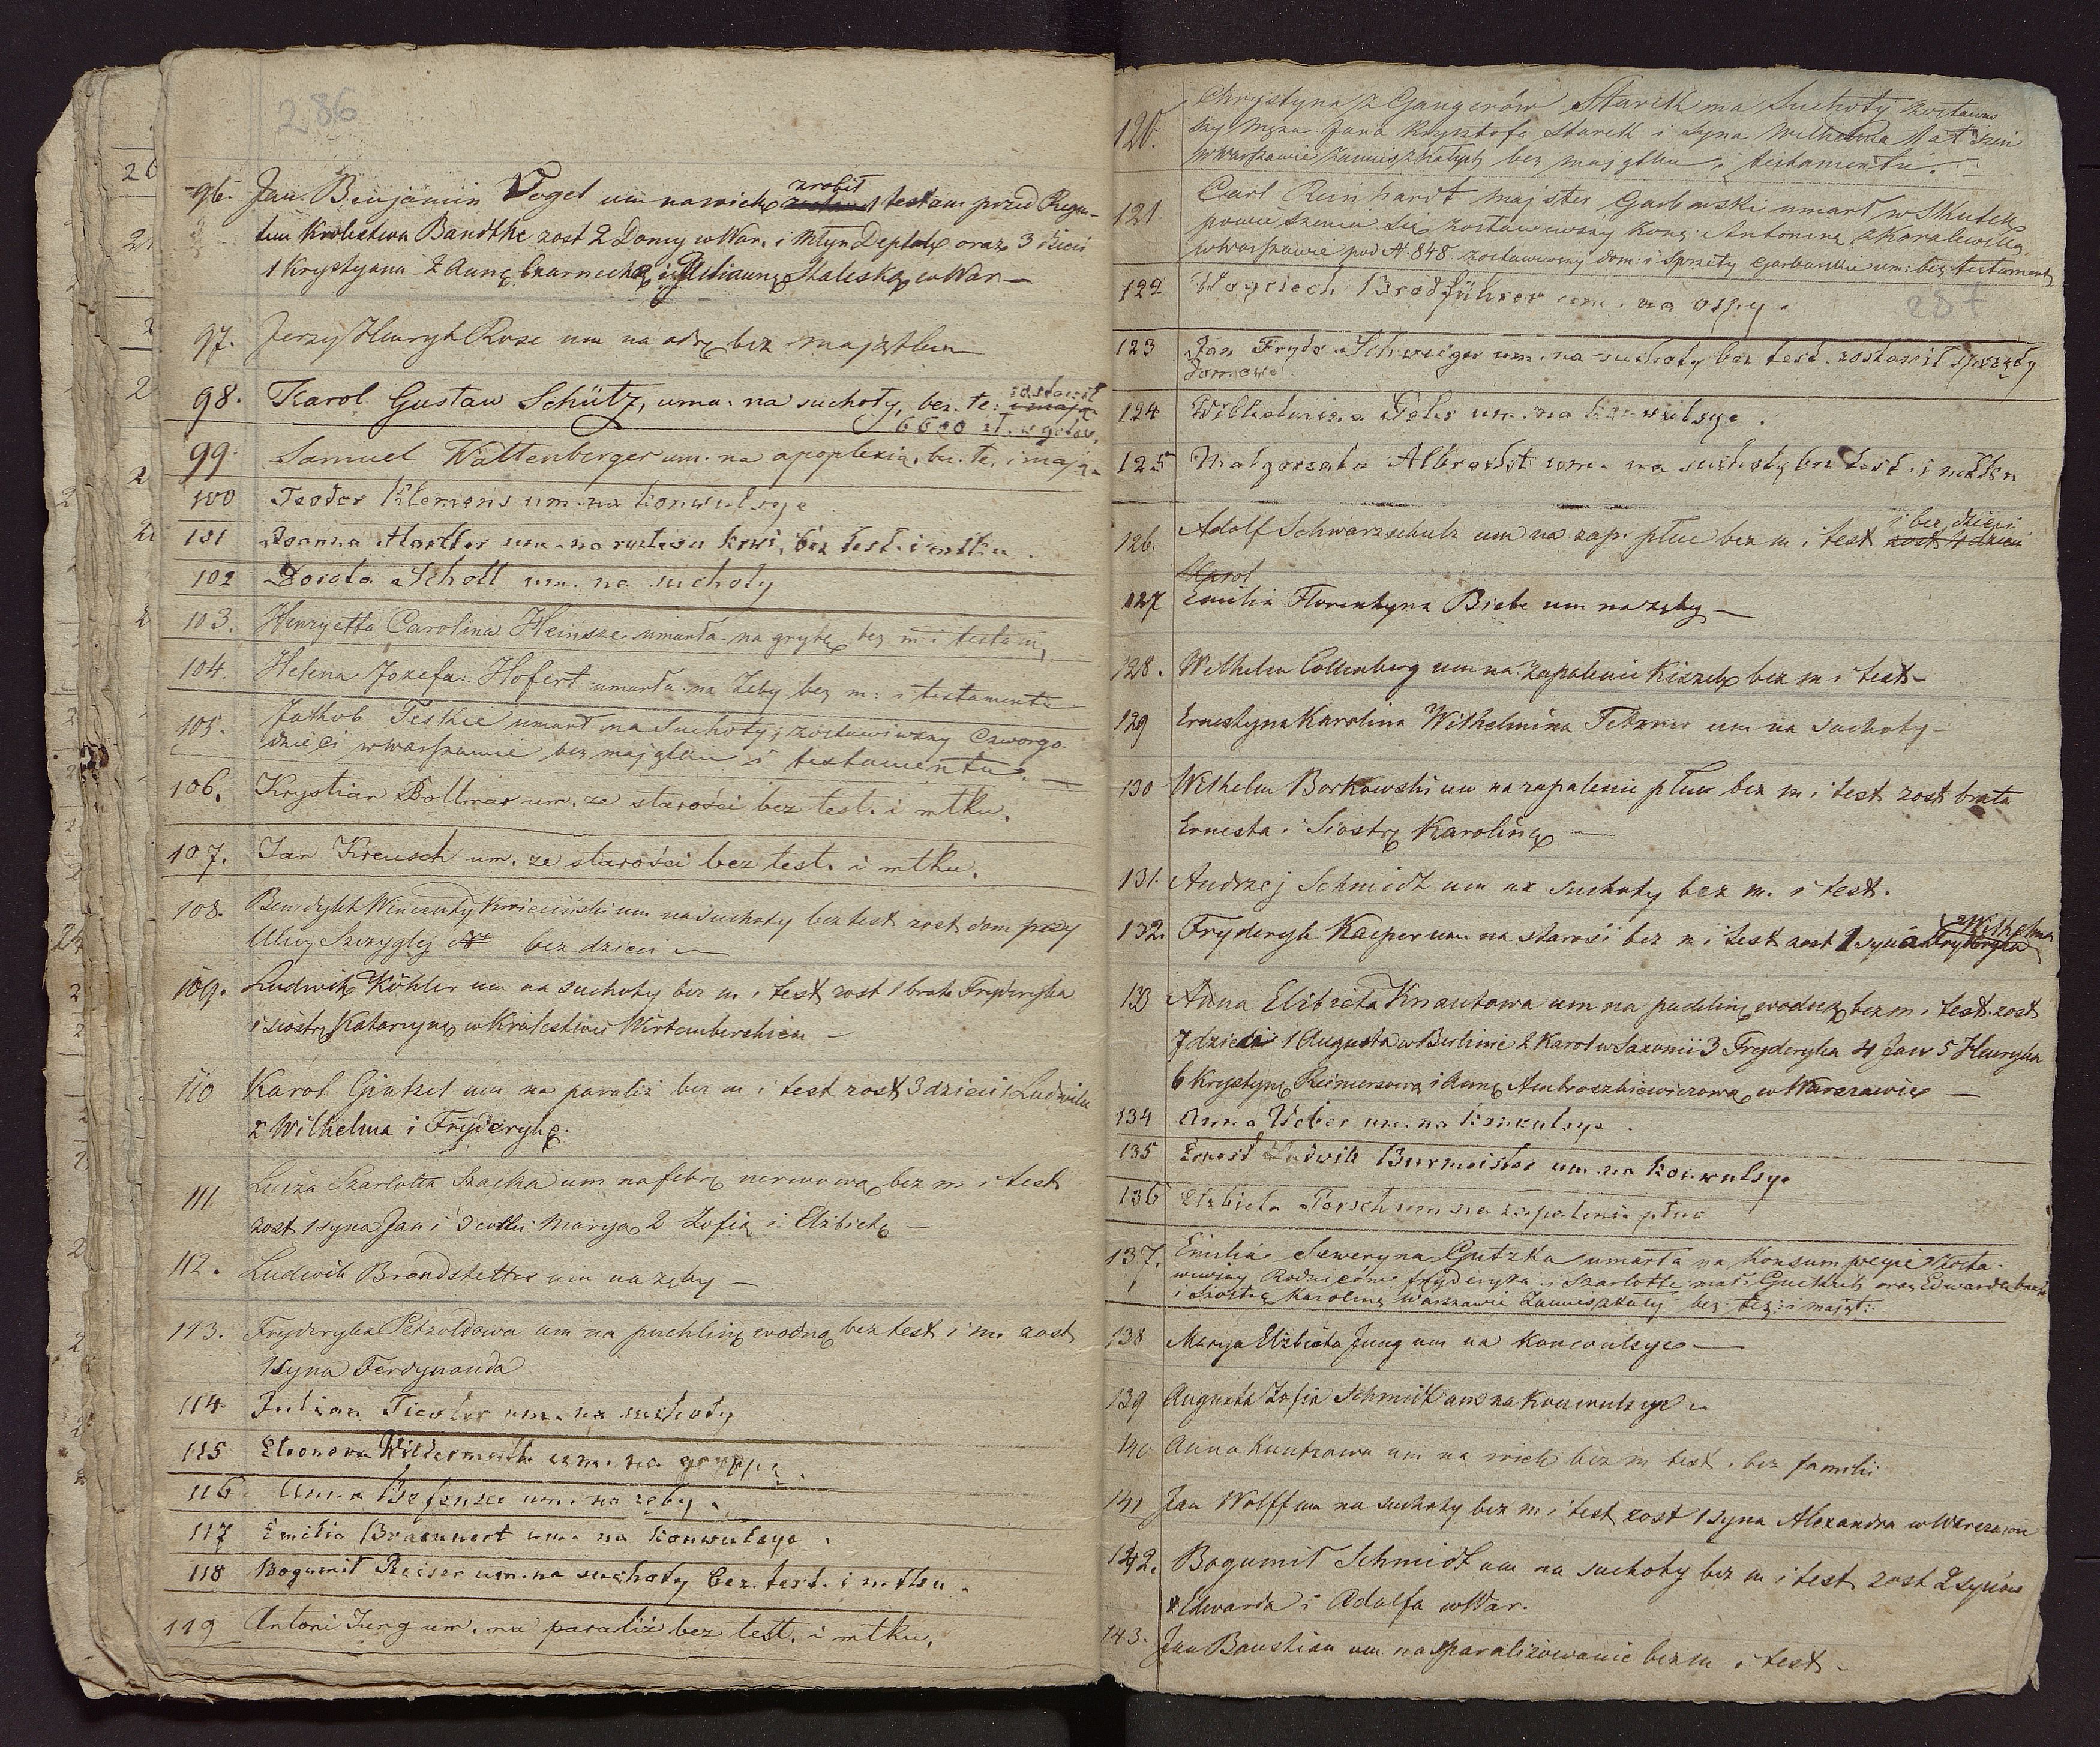 286
96. Jan Benjamin Vogel um na wiek zrobił testam przed Regen-
tem Królestwa Bandtke zost 2 Domy w War. i Młyn oraz 3 dzieci
1 Krystyana 2 Annę Czarnecką i Juliannę w War—
97. Jerzy Henryk Rose um na odrę bez majątku
98. Karol Gustaw Schütz, uma. na suchoty, bez. te: zostawił
6600 zł. w gotów.
99. Samuel Wattenberger um. na apoplexią. bez. te. i mają.
100 Teodor Klemens um. na konwulsye
101 Joanna Hartter um. na krwi, bez test. i mtku.
102 Dorota Schott um. na suchoty
103. Henryetta Carolina Heinsze umarła na grypę bez m i testam,
104. Helena Jozefa Hofert umarła na Zeby bez m: i testamentu
105. Jakob Teskie umarł na Suchoty, zostawiwszy Czworgo
dzieci w warszawie bez majątku i testamentu. —
106. Krystian Bollmar um. ze starości bez test. i mtku.
107. Jan Kreusch um. ze starości bez test. i mtku.
108. Benedykt Wincenty Kwieciński um na suchoty bez test zost dom przy
Ulicy Szczyglej No bez dzieci —
109. Ludwik Köhler um na suchoty bez m i test zost 1 brata Fryderyka
i siostrę Katarzynę w Królestwie Wirtemberskiem —
110 Karol Gintzel um na paraliż bez m i test zost 3 dzieci 1 Ludwika
2 Wilhelma i Fryderykę.
111. Luiza Szarlotta Szacka um na febrę nerwową bez m i test
zost 1 syna Jan i 3 córki Marya 2 Zofia i Elżbietę —
112. Ludwik Brandstetter um na zęby —
113. Fryderyka Petzoldowa um na puchlinę wodną bez test i m. zost
1 syna Ferdynanda
114 Julian um. na suchoty
115 Eleonora Wildermuth um. na gryppę.
116. Anna um. na zęby.
117 Emilia Braeunert um. na konwulsye.
118 Bogumił Reiser um. na suchoty bez. test. i mtku.
119 Antoni Jung um. na paraliż bez test. i mtku.
120. Chrystyna z Gaugerów Starck ma Suchoty zostawi
szy męża Jana Krysztofa Starck i Syna Wilhelma
w Warszawie zamieszkałych bez majątku i testamentu.
121. Carl Reinhardt majster Garbarski umarł w Skutek
powie szenia się zostawiwszy żonę Antoninę z Karalewską
w warszawie pod N 848 zostawiwszy dom: i Sprzęty Garbarskie um: bez testamentu
122 Woyciech Brodführer um. na ospę.
287
123 Jan Fryde. Schweiger um. na suchoty bez test. zostawił sprzęty
domowe.
124 Wilhelmina um. na konwulsye.
125 Małgorzata Albrecht um. na suchoty bez test. i mtku
126. Adolf Schwarzschulz um na zap. płuc bez m i test i bez dzieci
zost 4 dzieci
Karol
127 Emilia Florentyna Biebe um na zęby —
128. Wilhelm Collenberg um na zapalenie kiszek bez m i test—
129 Ernestyna Karolina Wilhelmina Tetzner um na suchoty—
130 Wilhelm Borkowski um na zapalenie płuc bez m i test zost brata
Ernesta i Siostrę Karolinę —
131. Andrzej Schmidt um na suchoty bez m. i test.
132. Fryderyk Kacper um na starość bez m i test zost 1 syna Wilhelma
Fryderyka
133 Anna Elżbieta Knautowa um na puchlinę wodną bez m i test. zost
7 dzieci 1 Augusta w Berlinie 2 Karol w Saxonii 3 Fryderyka 4 Jan 5 Henryka
6 Krystynę Reimersową i Annę Ambroszkiewiczową w Warszawie —
134 Anna Weber um. na konwulsye.
135 Ernest Ludwik Burmeister um. na konwulsye
136 Elżbieta Porsch um na zapalenie płuc
137. Emilia Seweryna Gutzka umarła na Konsumpcyie Zosta-
wiwszy Rodziców Fryderyka i Szarlotte mał. oraz Edwarda brata
i Siostrę Karolinę Warszawie Zamieszkały bez tes: i mająt:
138 Marya Elżbieta Jung um na Konwulsye —
139 Augusta Zofia Schmidt um na Konwulsye —
140 Anna Kuntzowa um na wiek bez m test i bez familii
141 Jan Wolff um na suchoty bez m i test zost 1 syna Alexandra w Warszawie
142. Bogumił Schmidt um na suchoty bez m i test zost 2 synów
Edwarda i Adolfa w War.
143. Jan Baustian um na sparaliżowanie bez m i test —